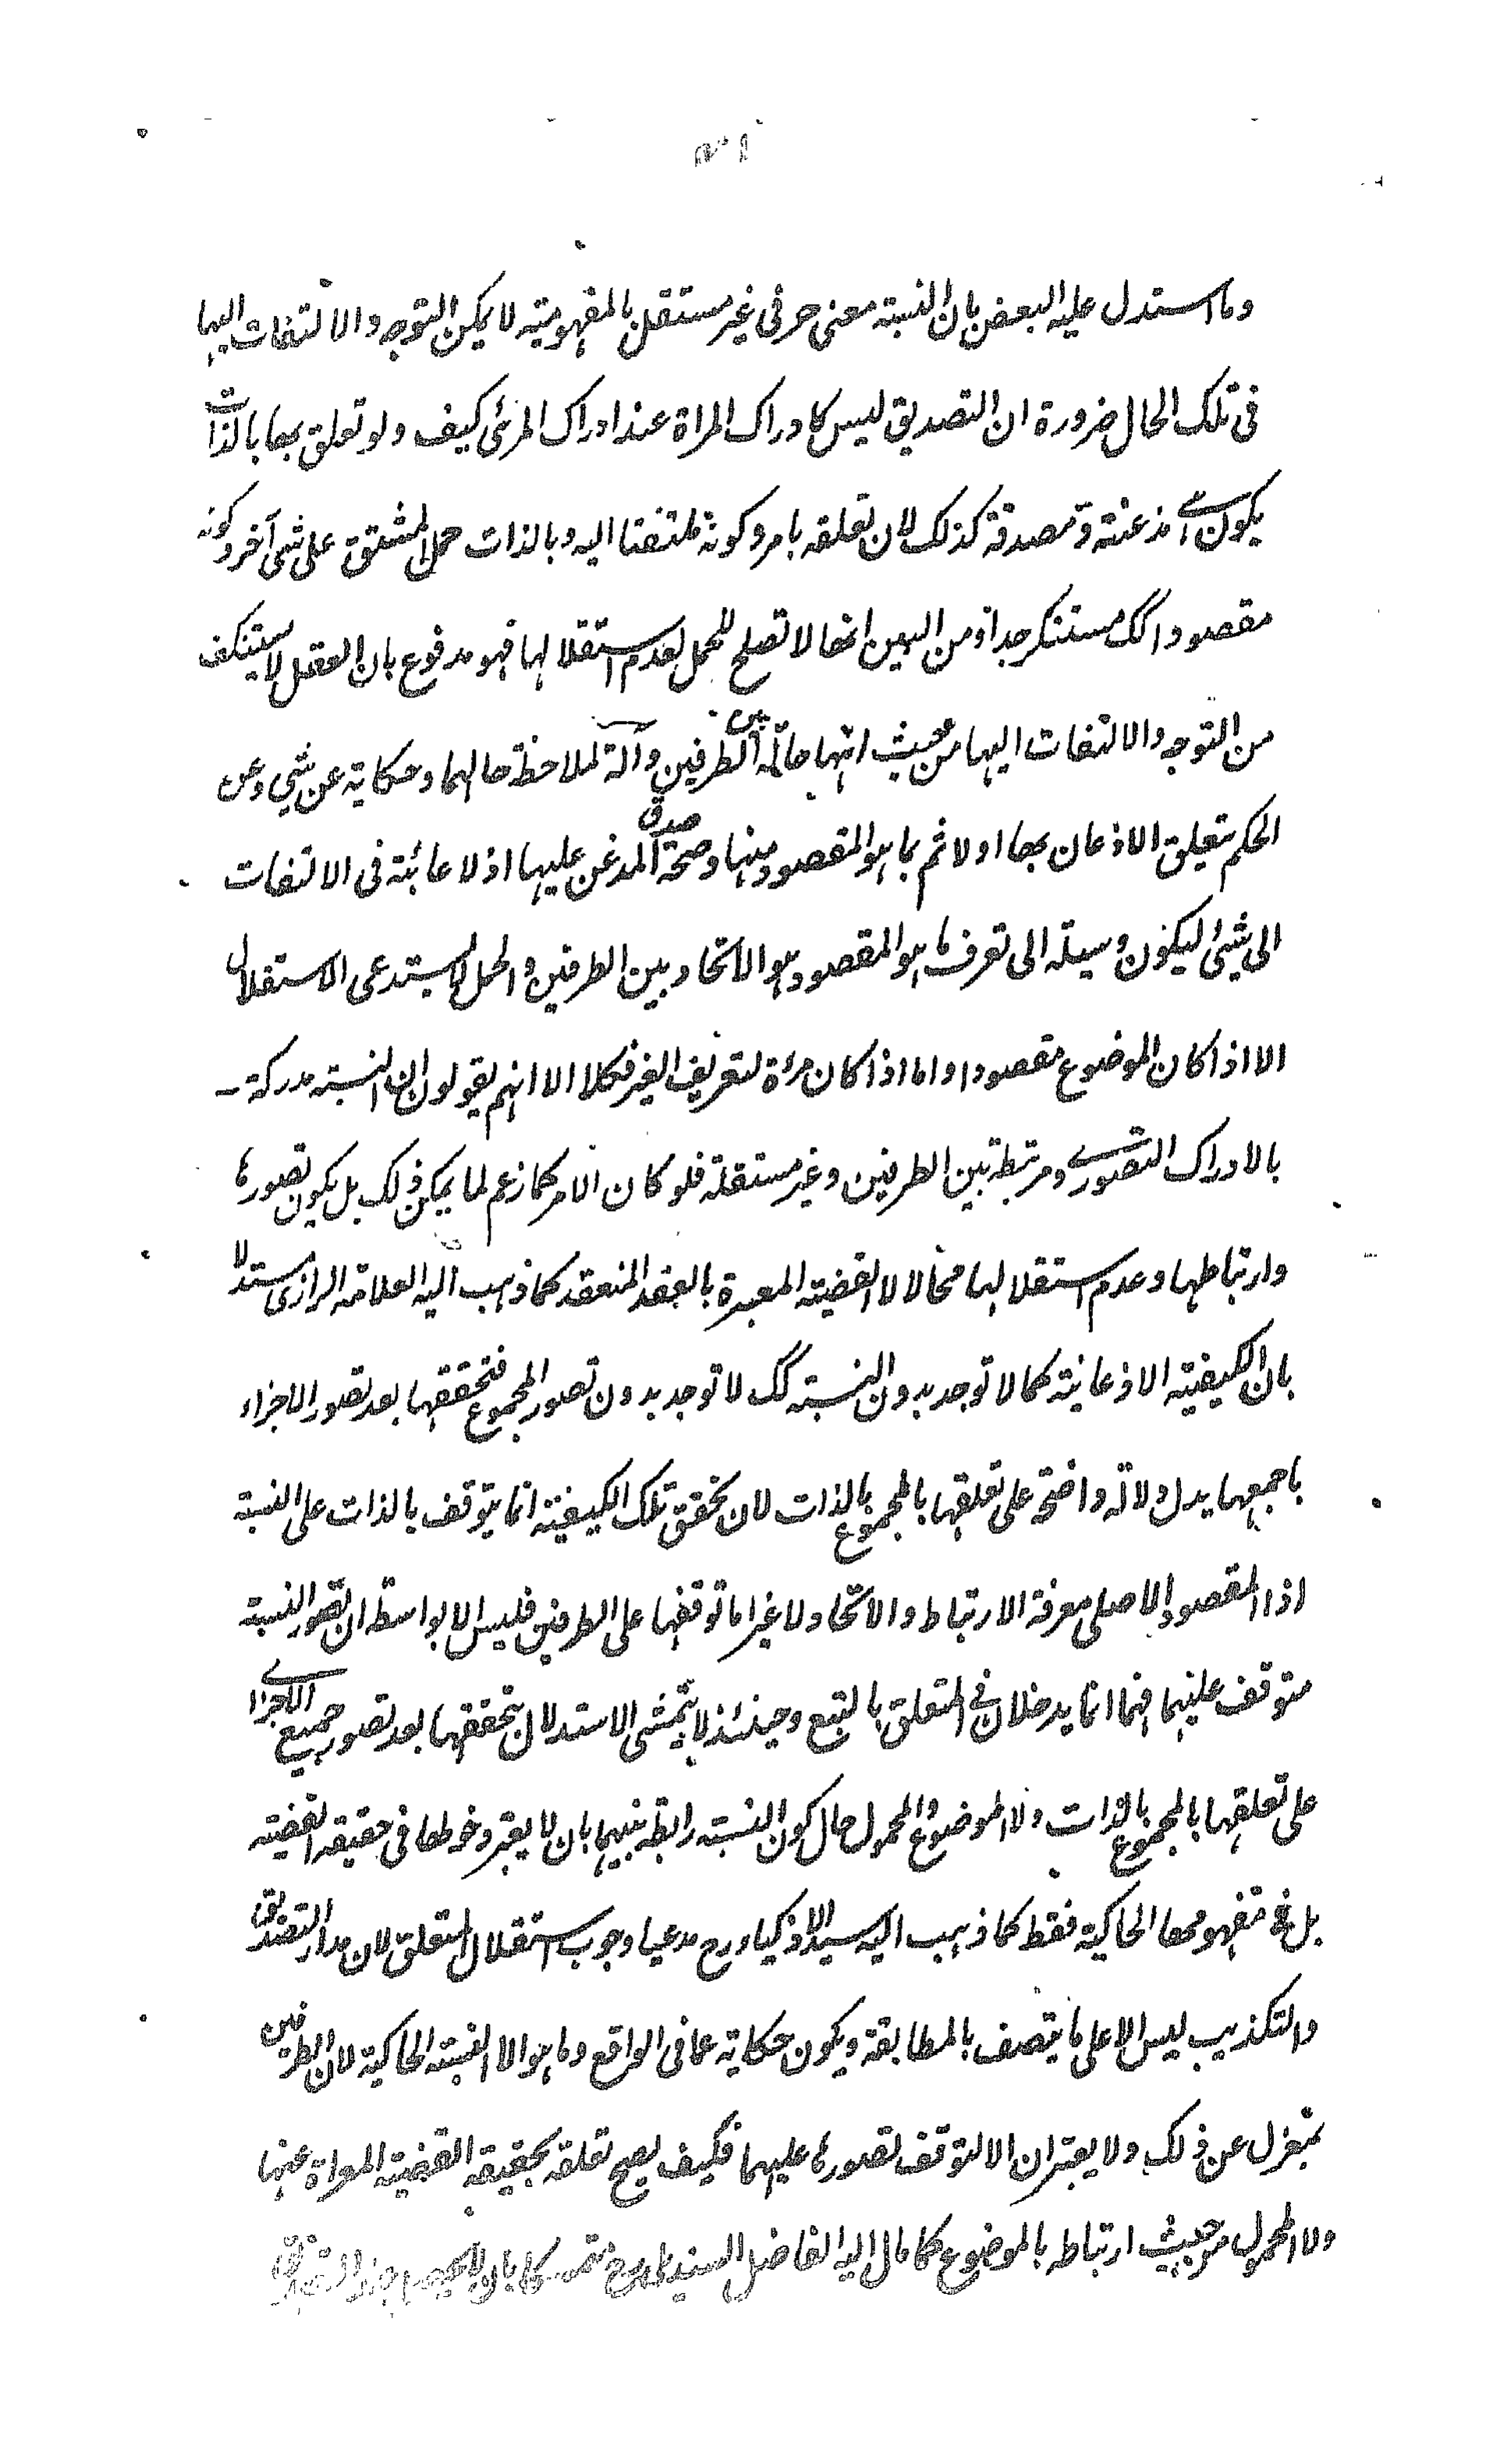 وما استدل عليه البعض بان النسبته معنى حرفى غير مستقل بالمفهوميته لا يمكن التوجه والالتفات اليها
فى تلك الحال ضرورة ان التصديق ليس كادراك المراة عند ادراك المرئى كيف ولو تعلق بها بالذات
يكون هى مذعنته ومصدقة كذلك لان تعلقه بامر وكونه ملتفتا اليه وبالذات حمل المشتق على شئ آخر وكونه
مقصودا كك مستنكر جدا ومن البين انها لا تصلح للحمل لعدم استقلالها فهو مدفوع بان العقل لا يستنكف
من التوجه والالتفات اليها من حيث انها حالة بين الطرفين وآلة لملاحظة حالهما وحكاية عن شئ وعن
الحكم بتعلق الاذعان بها اولا ثم بما هو المقصود منها وصحة صدق المذعن عليها اذ لا عائبة فى الالتفات
الى شئ ليكون وسيلة الى تعرف ما هو المقصود وهو الاتحاد بين الطرفين والحمل لا يستدعى الاستقلال
الا اذا كان الموضوع مقصودا واما اذا كان مرءة لتعريف الغير فكلا الا انهم يقولون ان النسبته مدركة
بالادراك التصورى ومرتبطة بين الطرفين وغير مستقلة فلو كان الامر كما زعم لما يمكن ذلك بل يكون تصورها
وارتباطها وعدم استقلالها محالا لا القضيته المعبرة بالعقد المنعقد كما ذهب اليه العلامة الرازى مستدلا
بان الكيفيته الاذعانيته كما لا توجد بدون النسبته كك لا توجد بدون تصور المجموع فتحققها بعد تصور الاجزاء
باجمعها يدل دلالة واضحة على تعلقها بالمجموع بالذات لان تحقق تلك الكيفيته انما يتوقف بالذات على النسبة
اذ المقصود الاصلى معرفة الارتباط والاتحاد لا غير اما توقفها على الطرفين فليس الا بواسطة ان تصور النسبة
متوقف عليهما فهما انما يدخلان فى المتعلق بالتبع وحينئذ لا يتمشى الاستدلال بتحققها بعد تصور جميع الاجزاء
على تعلقها بالمجموع بالذات ولا الموضوع والمحمول حال كون النسبته رابطة بينهما بان لا يعتبر دخولها فى حقيقة القضيته
بل فى مفهومها الحاكية فقط كما ذهب اليه سيد الاذكياء رح مدعيا وجوب استقلال المتعلق لان مدار التصديق
والتكذيب ليس الا على ما يتصف بالمطابقة ويكون حكاية عما فى الواقع وما هو الا النسبته الحاكية لان الطرفين
بمعزل عن ذلك ولا يعتبران الا لتوقف تصورها عليهما فكيف يصح تعلقه بحقيقة القضيته المعراة عنها
ولا المحمول من حيث ارتباطه بالموضوع كما مال اليه الفاضل السنديلى رح